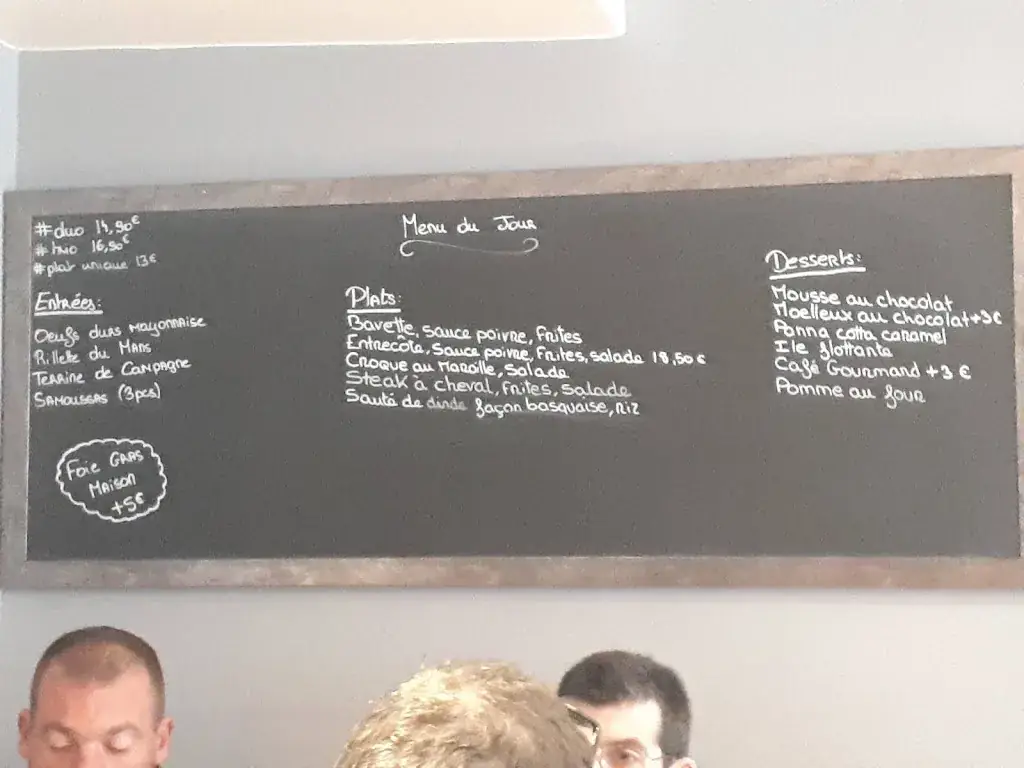 #duo 14,90€
#trio 16,90€
#plat unique 13€
Menu du Jour
Entrées:
Oeufs durs mayonnaise
Rillette du Mans
Terrine de Campagne
Samoussas (3pcs)
Foie Gras
Maison
+5€
Plats:
Bavette, sauce poivre, frites
Entrecôte, sauce poivre, frites, salade 18,50€
Croque au Maroille, salade
Steak à cheval, frites, salade
Sauté de dinde façon basquaise, riz
Desserts:
Mousse au chocolat
Moelleux au chocolat +3€
Panna cotta caramel
Ile flottante
Café Gourmand +3€
Pomme au four